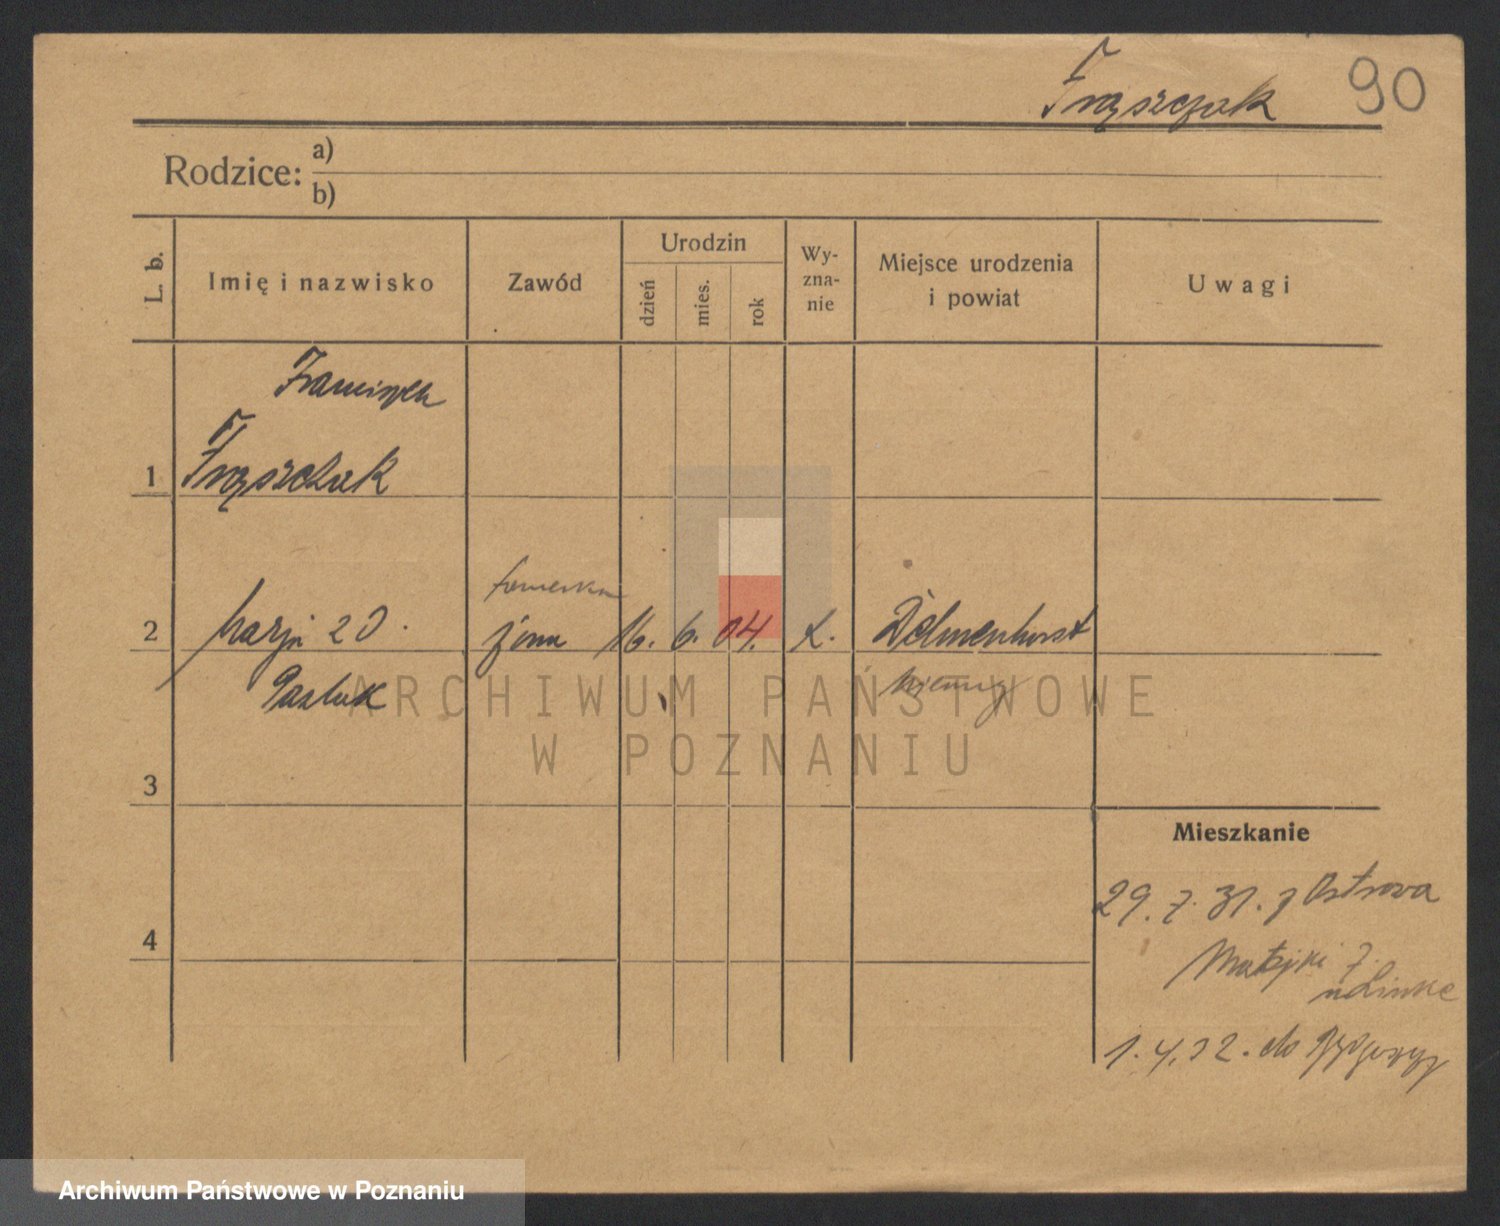 Frąszczak 90
Rodzice: a)
b)
L. b.
Imię i nazwisko
Zawód
Urodzin
dzień
mies.
rok
Wy-
zna-
nie
Miejsce urodzenia
i powiat
Uwagi
Franciszek
1 Frąszczak
2 Marja zd. żona 16. 6. 04. k. Delmenhorst
Niemcy
3
4
Mieszkanie
29. 7. 31. z Ostrowa
Matejki 7.
u Linke
1. 4. 32. do
ARCHIWUM PAŃSTWOWE
W POZNANIU
Archiwum Państwowe w Poznaniu